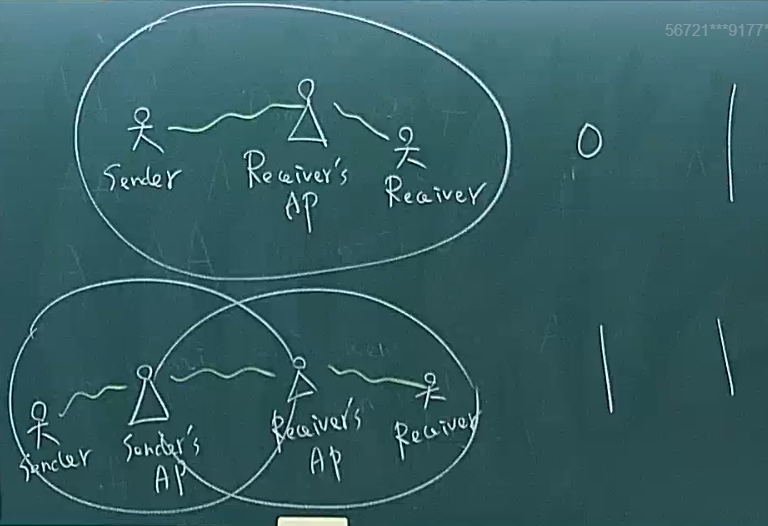 56721***9177*
Sender
Receiver's
AP
Receiver
0 |
Sender
Sender's
AP
Receiver's
AP
Receiver
| |